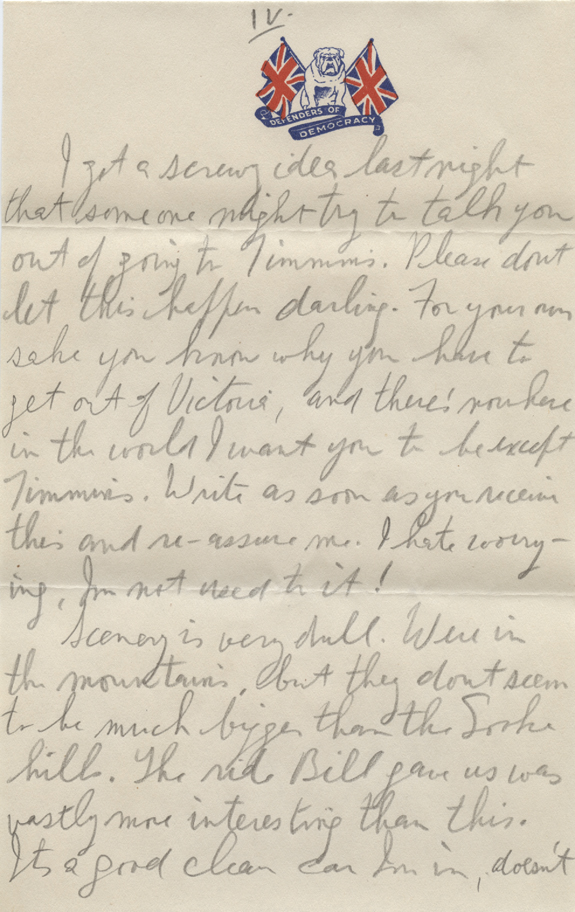 IV.
DEFENDERS OF
DEMOCRACY
I got a screwy idea last night
that someone might try to talk you
out of going to Timmins. Please dont
let this happen darling. For your own
sake you know why you have to
get out of Victoria, and there's nowhere
in the world I want you to be except
Timmins. Write as soon as you receive
this and re-assure me. I hate worry-
ing, Im not used to it!
Scenery is very dull. Were in
the mountains, but they dont seem
to be much bigger than the Sooke
hills. The ride Bill gave us was
vastly more interesting than this.
Its a good clean car Im in, doesn't